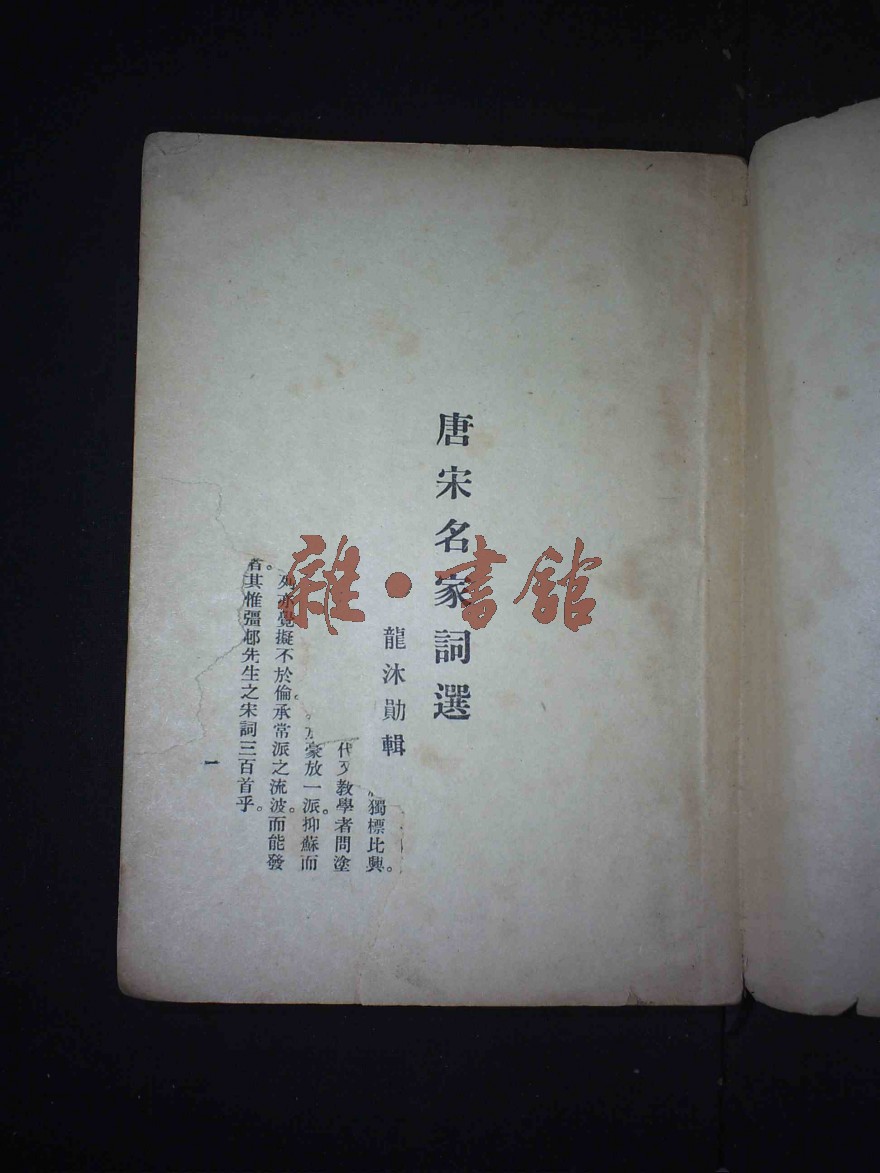 唐宋名家詞選
龍沐勛輯
獨標比興。
教學者問塗
豪放一派。抑蘇而
亦覺擬不於倫。承常派之流波。而能發
其惟彊邨先生之宋詞三百首乎。
一
雜·書館